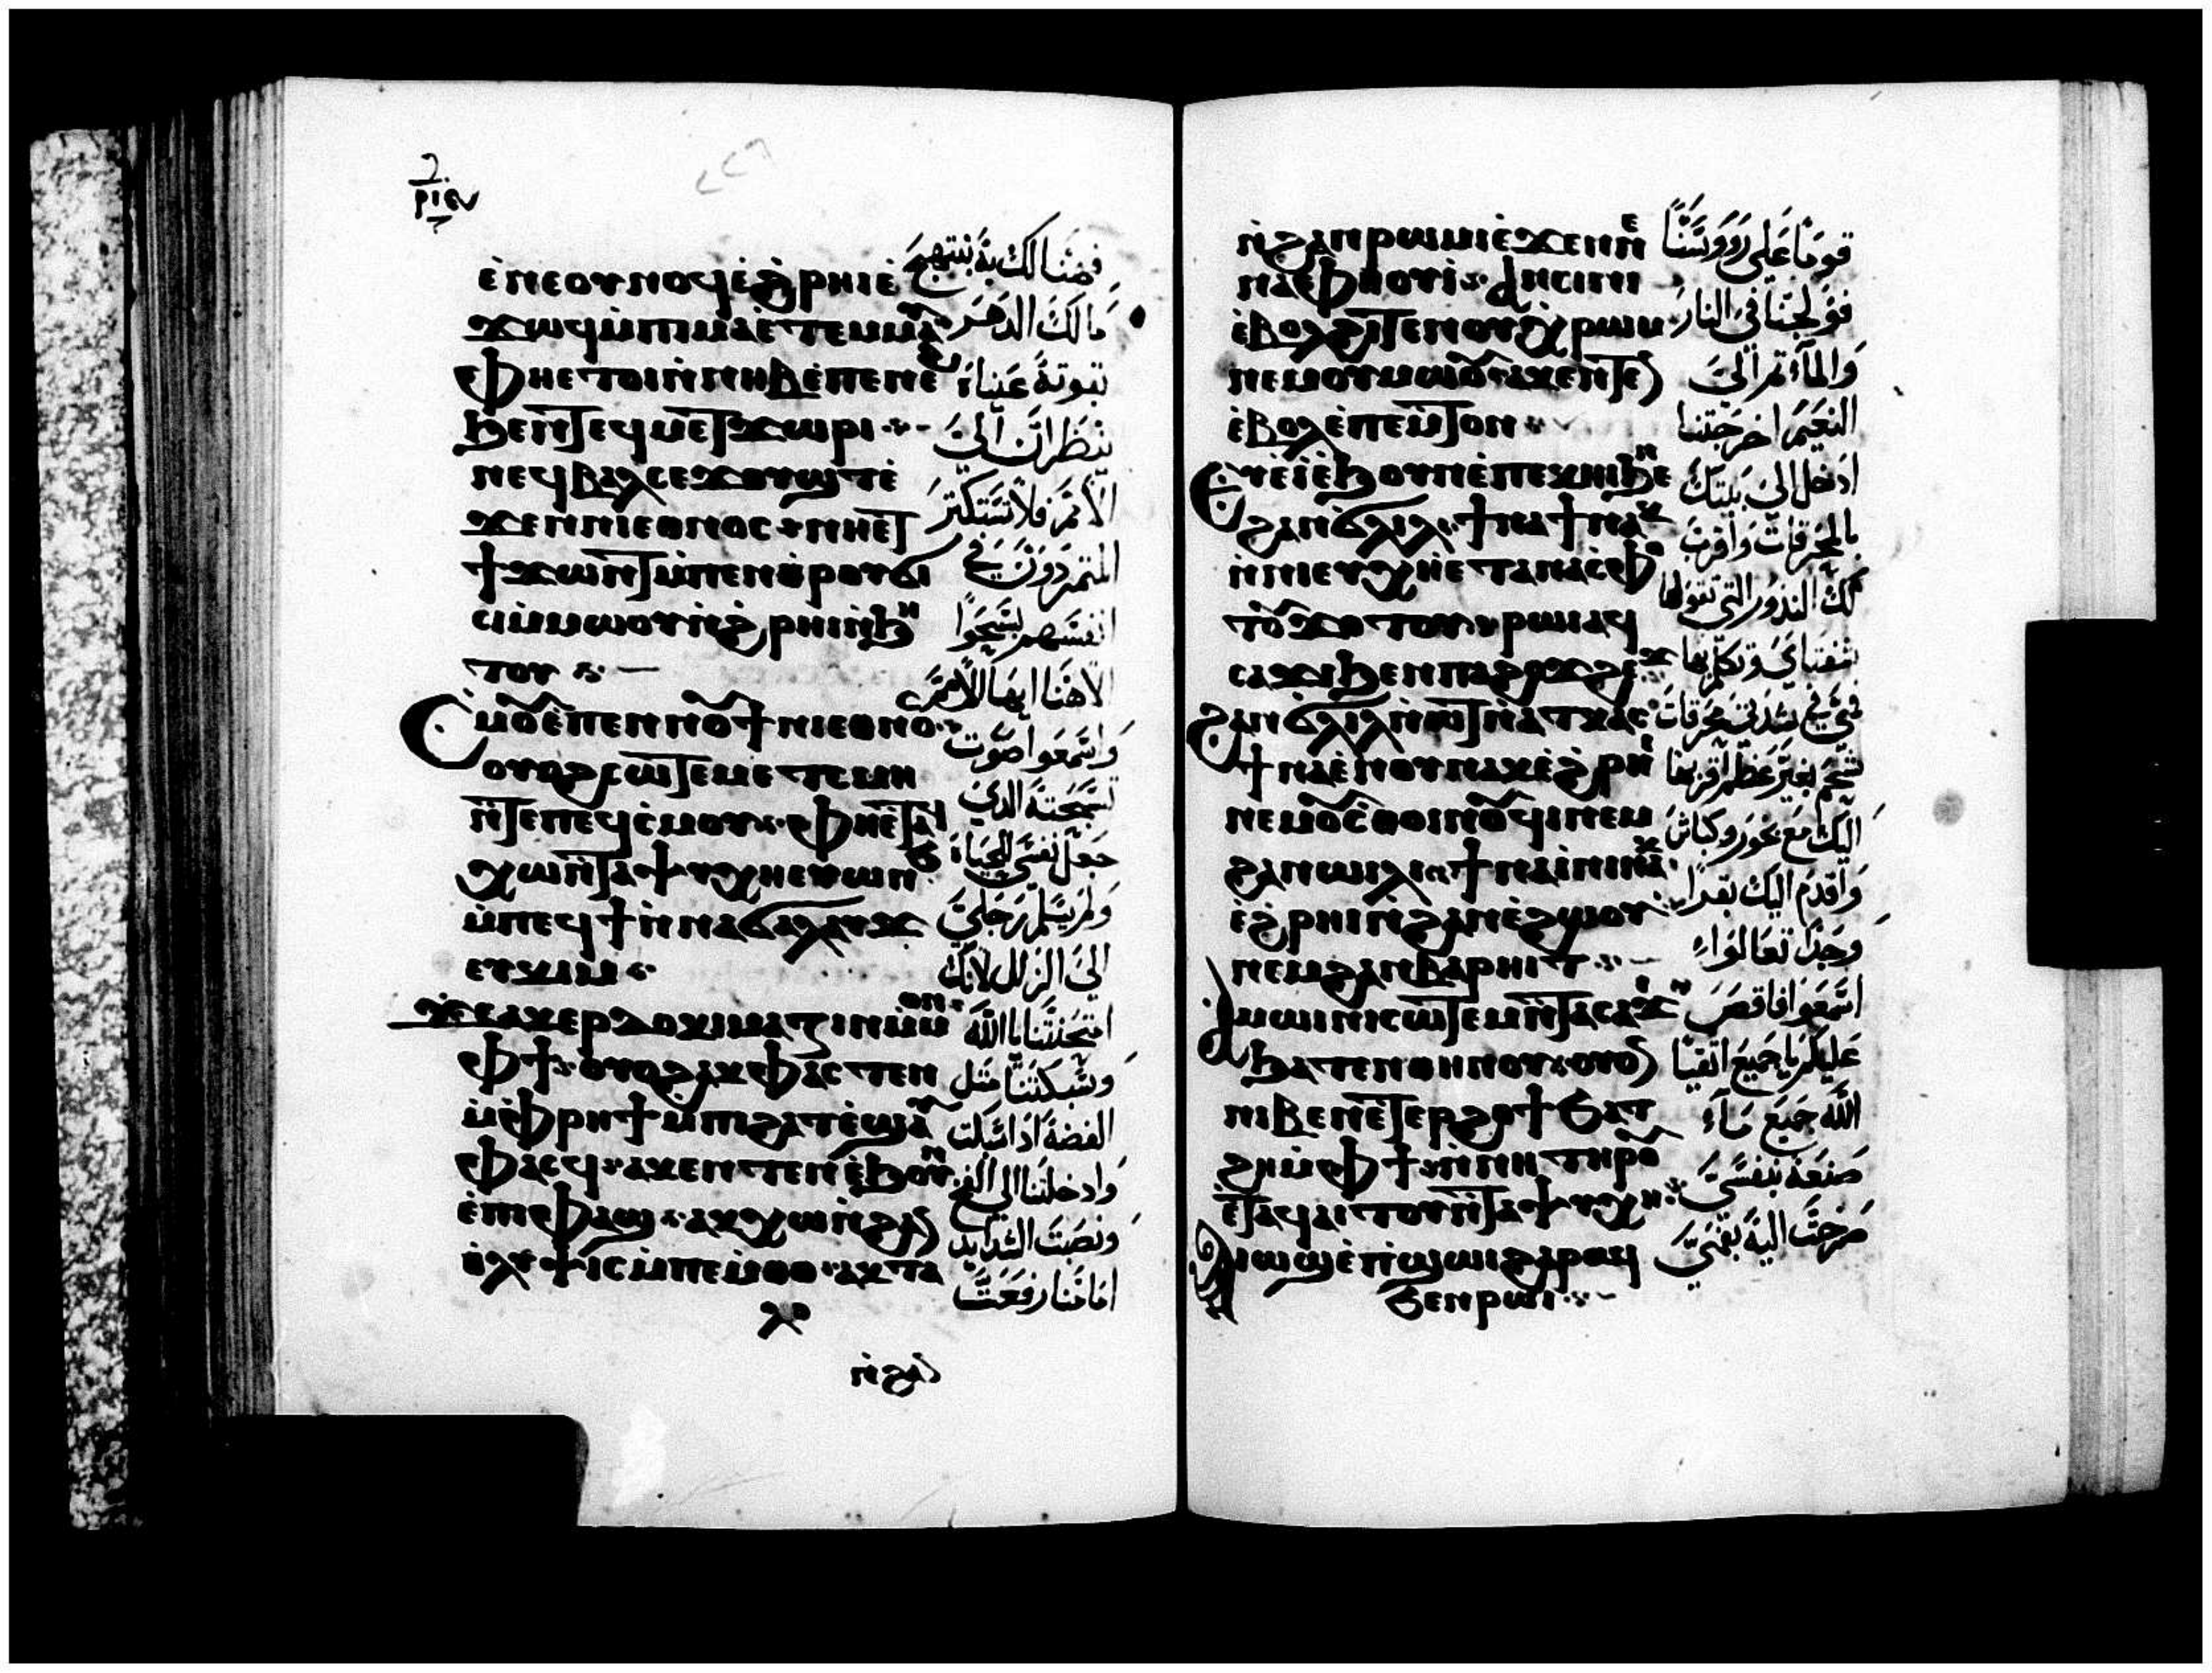 ⲣⲓⲉ
ⲉⲛⲉⲟⲩⲛⲟϥⲉϩⲣⲏⲓⲉ
ϫⲱϥⲙⲡⲓⲙⲁⲉⲧⲉⲙⲙⲁⲩ
ⲫⲏⲉⲧⲟⲓⲛⲛⲏⲃⲉⲡⲉⲛⲉϩ
ϧⲉⲛⲧⲉϥⲙⲉⲧϫⲱⲣⲓ
ⲛⲉϥⲃⲁⲗⲥⲉϫⲟⲩϣⲧⲉ
ϫⲉⲛⲛⲓⲉⲑⲛⲟⲥ ⲛⲏⲉⲧ
ϯϫⲱⲛⲧⲙⲡⲉⲛⲑⲣⲟⲩϭⲓ
ⲥⲓⲙⲙⲱⲟⲩⲛϩⲣⲏⲓⲛϧⲏ
ⲧⲟⲩ
Ⲥⲙⲟⲩⲉⲡⲉⲛⲛⲟⲩϯⲛⲓⲉⲑⲛⲟⲥ
ⲟⲩⲟϩⲥⲱⲧⲉⲙⲉⲧⲥⲙⲏ
ⲛⲧⲉⲡⲉϥⲥⲙⲟⲩ ⲫⲏⲉⲧⲁϥ
ⲭⲱⲛⲧⲁⲯⲩⲭⲏⲉⲩⲱⲛϧ
ⲙⲡⲉϥϯⲛⲛⲁϭⲁⲗⲁⲩϫ
ⲉⲩⲕⲓⲙ
ϫⲉⲁⲕⲉⲣⲇⲟⲕⲓⲙⲁⲍⲓⲛⲙⲙⲟⲛ
ⲫϯ ⲟⲩⲟϩⲁⲕⲫⲁⲥⲧⲉⲛ
ⲙⲫⲣⲏϯⲙⲡⲓϩⲁⲧⲉϣⲁⲩ
ⲫⲁⲥϥ ⲁⲕⲉⲛⲧⲉⲛⲉϧⲟⲩⲛ
ⲉⲡⲓⲫⲁϣ ⲁⲕⲭⲱⲛϩⲁⲛ
ⲑⲗⲩⲯⲓⲥⲙⲡⲉⲙⲑⲟ ⲁⲕⲧⲁ
ⲗⲟ
ⲛϩⲁⲛ
فهنالك به نبتهج
مالك الدهر
بقوته عيناه
ينظران الي
الامم فلا يستكبر
المتمردون في
انفسهم سبحوا
الاهنا ايها الامم
واسمعوا صوت
تسبحته الذي
جعل نفسي للحياة
ولم يسلم رجلي
الي الزلل لانك
امتحنتنا يا الله
وسبكتنا مثل
الفضه اذا سبكت
وادخلتنا الي الفخ
ونصبت الشدايد
امامنا رفعت
ⲛϩⲁⲛⲣⲱⲙⲓⲉϫⲉⲛⲛⲉ
ⲛⲁⲫⲏⲟⲩⲓ ⲁⲛⲥⲓⲛⲓ
ⲉⲃⲟⲗϩⲓⲧⲉⲛⲟⲩⲭⲣⲱⲙ
ⲛⲉⲙⲟⲩⲙⲱⲟⲩ ⲁⲕⲉⲛⲧⲉⲛ
ⲉⲃⲟⲗⲉⲡⲉⲙⲧⲟⲛ
Ⲉⲓⲉⲓⲉϧⲟⲩⲛⲉⲡⲉⲕⲏⲓϧⲉⲛ
ϩⲁⲛϭⲗⲓⲗ ϯⲛⲁϯⲛⲁⲕ
ⲛⲛⲓⲉⲩⲭⲏⲉⲧⲁⲛⲁⲥⲫⲟ
ⲧⲟⲩϫⲟⲧⲟⲩ ⲣⲱⲓⲁϥ
ⲥⲁϫⲓϧⲉⲛⲡⲁϩⲟϫϩⲉϫ
ϩⲁⲛϭⲗⲓⲗⲛⲱⲧⲛⲁⲧⲕⲁⲥ
ϯⲛⲁⲉⲛⲟⲩⲛⲁⲕⲉϩⲣⲏⲓ
ⲛⲉⲙⲟⲩⲥⲑⲟⲓⲛⲟⲩϥⲓⲛⲉⲙ
ϩⲁⲛⲱⲓⲗⲓ ϯⲛⲁⲓⲛⲓⲛⲁⲕ
ⲉϩⲣⲏⲓⲛϩⲁⲛⲉϩⲱⲟⲩ
ⲛⲉⲙϩⲁⲛⲃⲁⲣⲏⲓⲧ
Ⲁⲙⲱⲓⲛⲓⲥⲱⲧⲉⲙⲛⲧⲁⲥⲁϫⲓ
ϧⲁⲧⲉⲛⲑⲏⲛⲟⲩ ⲟⲩⲟⲛ
ⲛⲓⲃⲉⲛⲉⲧⲉⲣϩⲟϯϧⲁⲧ
ϩⲏⲙⲫϯ ⲛⲛⲏⲧⲏⲣⲟⲩ
ⲉⲧⲁϥⲁⲓⲧⲟⲩⲛⲧⲁⲯⲩⲭⲏ
Ⲁⲓⲱϣⲉⲡϣⲱⲓϩⲁⲣⲟϥ
ϧⲉⲛⲣⲱⲓ
قوما علي رووسنا
فولجنا في النار
والماء ثم الي
النعيم اخرجتنا
ادخل الي بيتك
بالمحرقات واقرب
لك النذور التي تنقولها
شفتاي وتكلم بها
فمي في شدتي محرقات
شحم بغير عظم اقربها
اليك مع بخور وكباش
واقدم اليك بقرا
وجدا تعالوا
اسمعوا فاقص
عليكم يا جميع اتقيا
الله جميع ماء
صنعه بنفسي
صرخت اليه بفمي